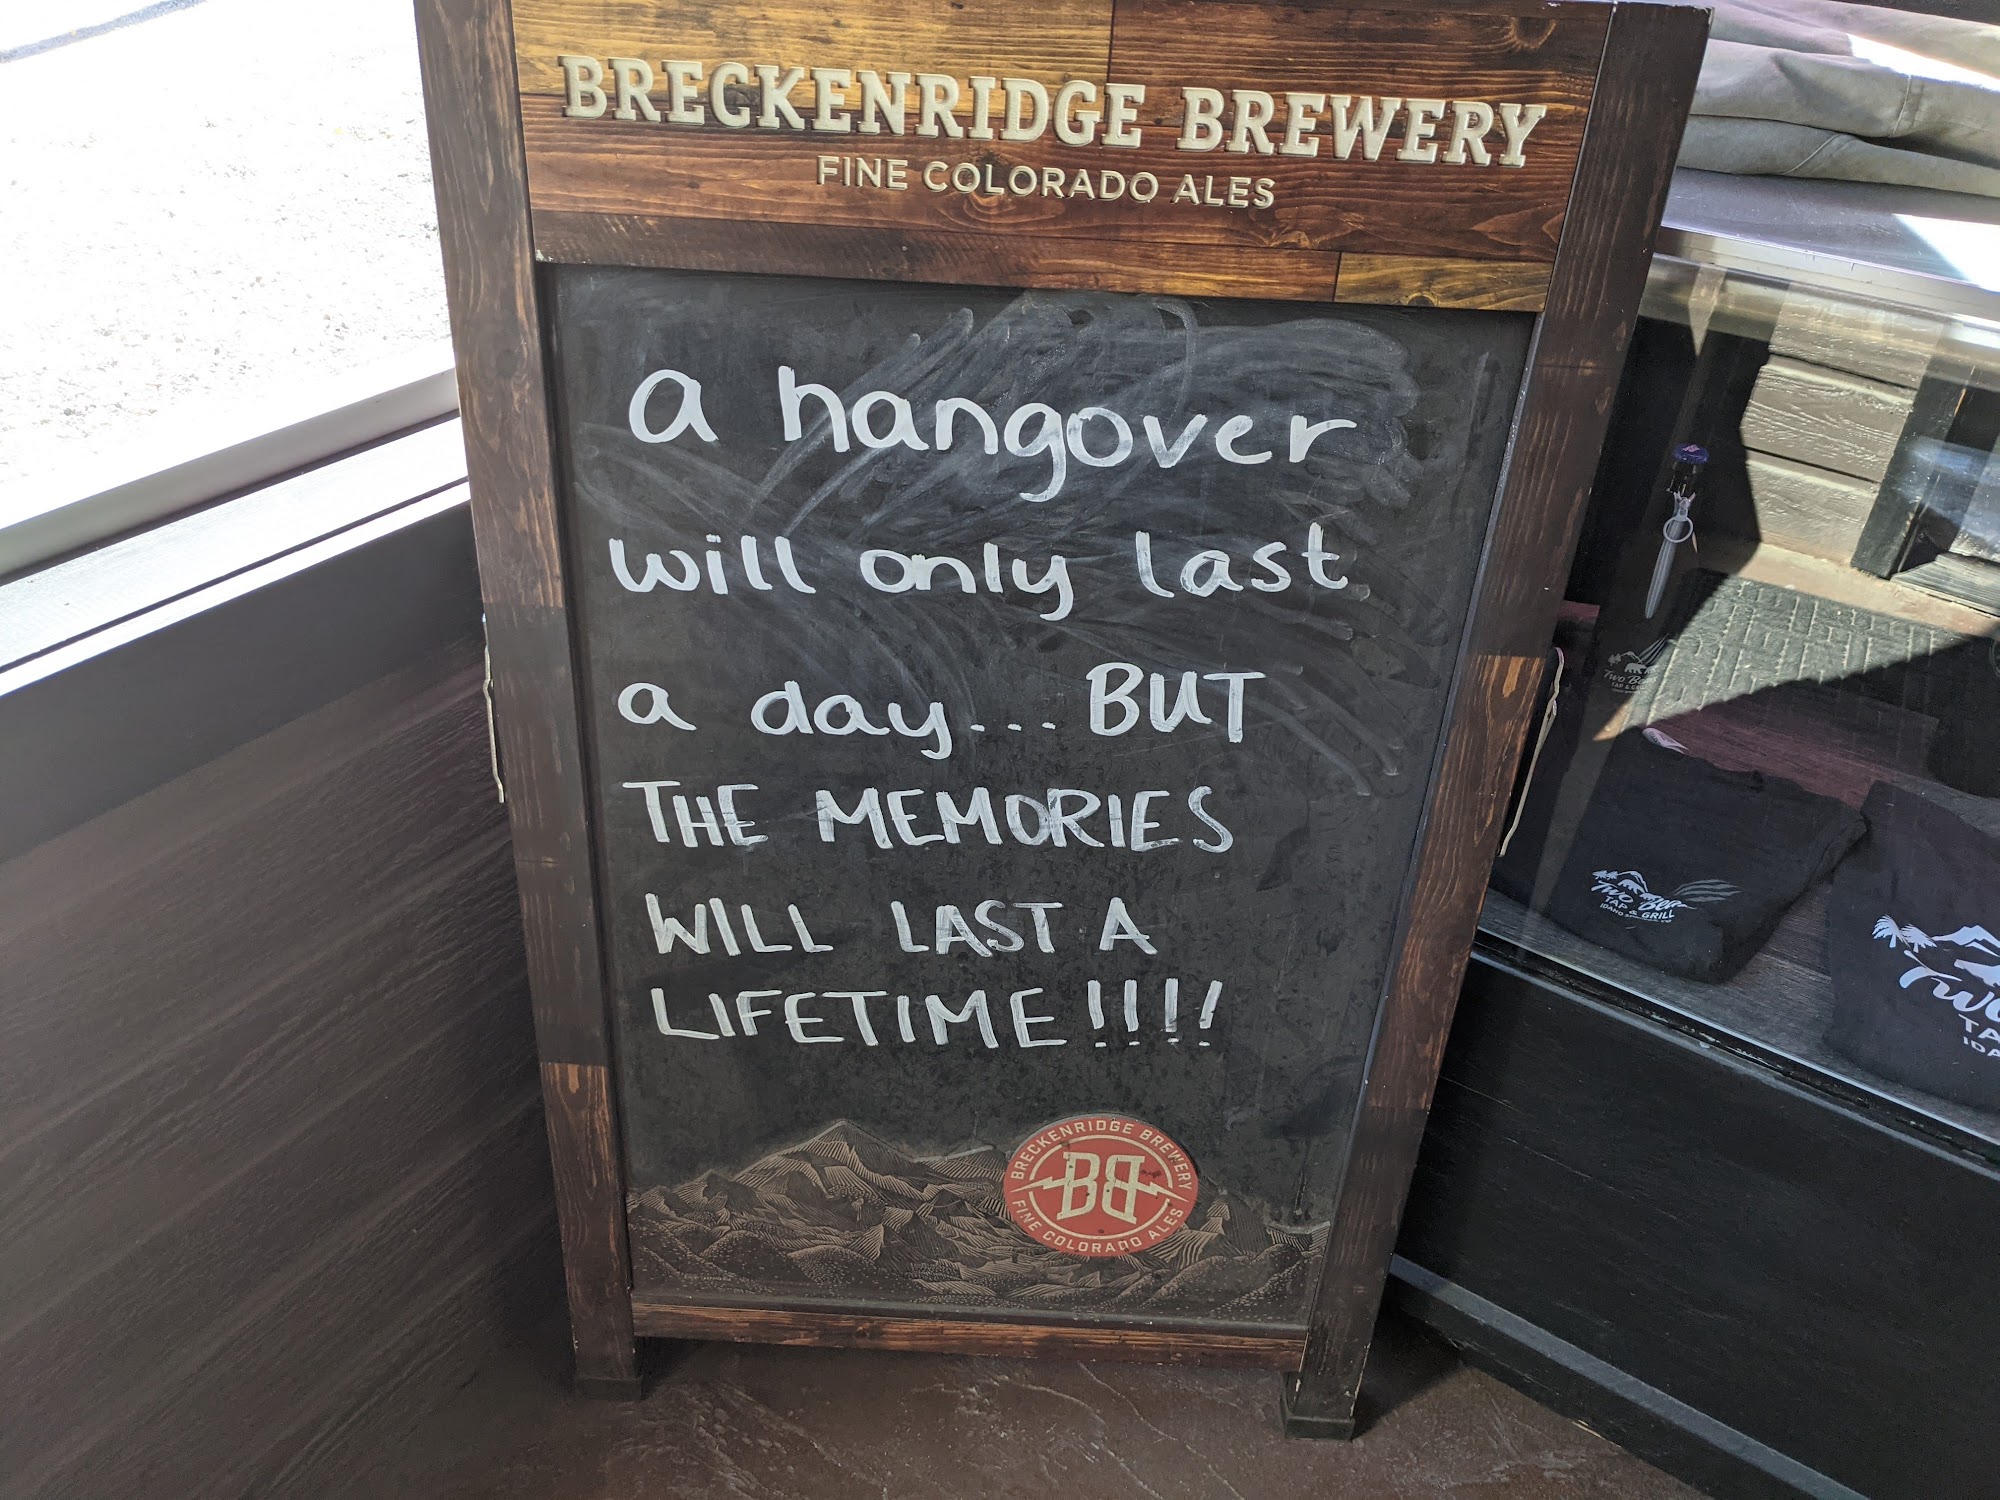 BRECKENRIDGE BREWERY
FINE COLORADO ALES
a hangover
will only last
a day... BUT
THE MEMORIES
WILL LAST A
LIFETIME!!!!
BRECKENRIDGE BREWERY
BB
FINE COLORADO ALES
TWO BEAR
TAP & GRILL
TWO BEA
TAP & GRILL
IDAHO
TWO
TA
IDA